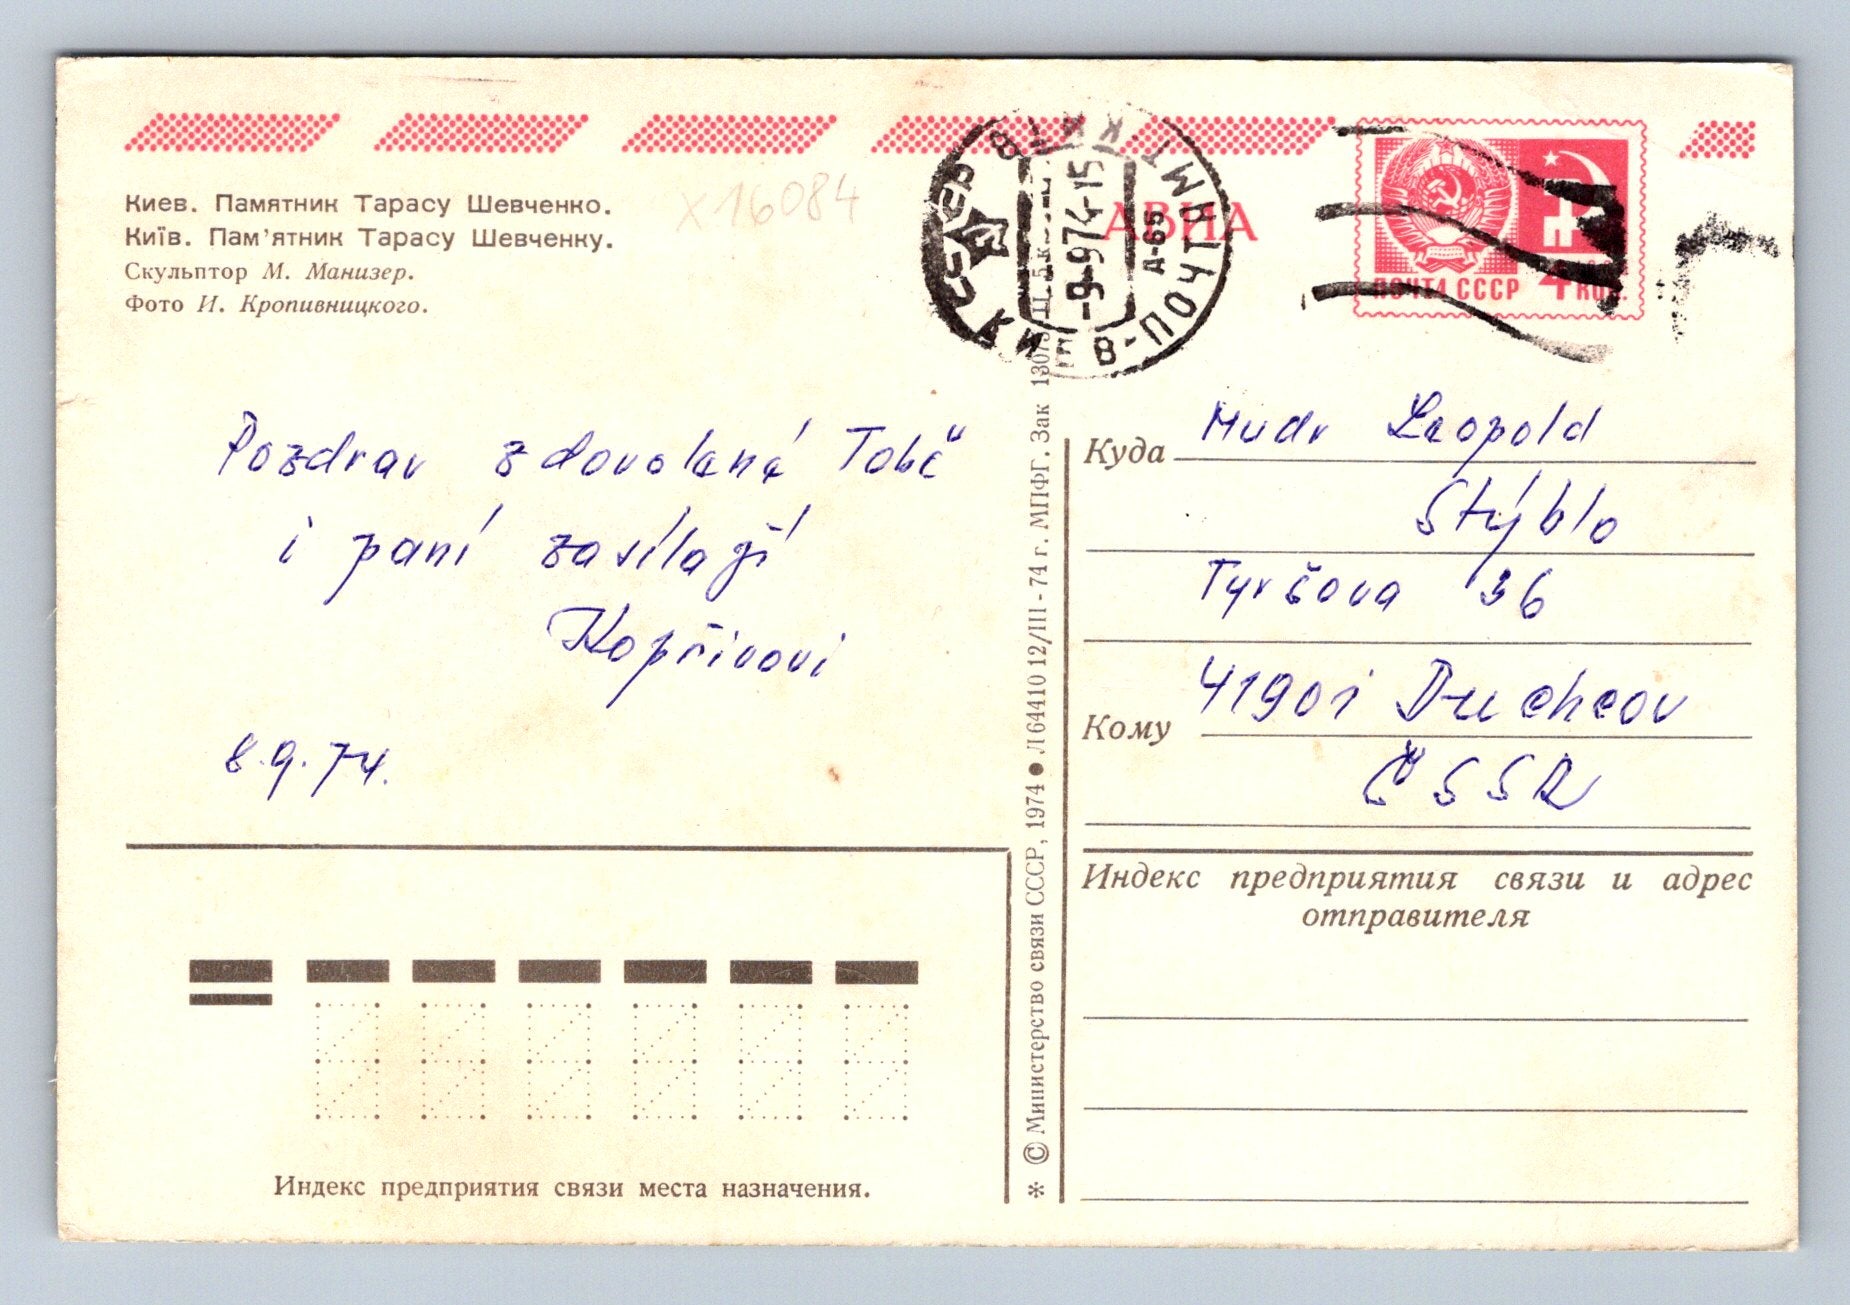 Киев. Памятник Тарасу Шевченко.
Київ. Пам'ятник Тарасу Шевченку.
Скульптор М. Манизер.
Фото И. Кропивницкого.
X16084
АВИА
СССР
КИЕВ-ПОЧТАМТ
-9-974-15
А-65
ПОЧТА СССР 4 КОП.
Pozdrav z dovolená Tobě
i paní zasílají
Kopřivovi
8.9.74.
Куда Mudr Leopold
Stýblo
Tyršova 36
Кому 41901 Duchcov
ČSSR
Индекс предприятия связи и адрес
отправителя
Индекс предприятия связи места назначения.
* © Министерство связи СССР, 1974 ● Л64410 12/III-74 г. МПФГ. Зак